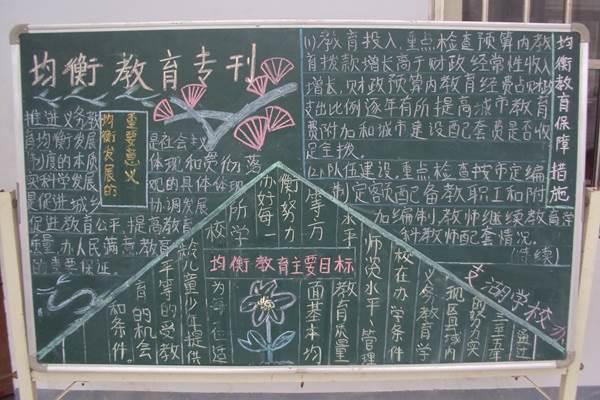 均衡教育专刊
均衡发展的
重要意义
推进义务教
育均衡发展是社会主义
制度的本质体现和贯彻落
实科学发展观的具体体现
促进城乡协调发展
促进教育公平,提高教育
质量,办人民满意教育
的重要保证
均衡教育保障措施
(1)教育投入,重点检查预算内教
育拨款增长高于财政经常性收入
增长,财政预算内教育经费占财政
支出比例逐年有所提高城市教育
费附加和城市建设配套费是否收
足全拨。
(2)队伍建设,重点检查按市定编
制定额配备教职工和附
加编制,教师继续教育学
科教师配套情况。
(待续)
均衡教育主要目标
通过
三至五年
的努力实
现区域内
义务教育学
校在办学条件
师资水平、管理
水平教育质量
等方面基本均
衡努力
办好每一
所学
校为每一位适
龄儿童少年提供
平等的受教
育的机会
和条件。
支湖学校办